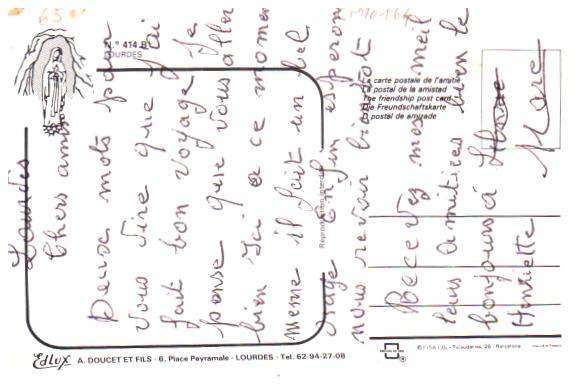 65
N.º 414 B
LOURDES
Lourdes
Chers amis
Deux mots pour
vous dire que j'ai
fait bon voyage Je
panse que vous aller
bien Ici a ce momen
meme il fait un bel
orage En fin esperon
nous revoir biantot
Recevez mes meil
leurs amitiés bien le
bonjour à
Marc
Henriette
La carte postale de l'amitié
La postal de la amistad
The friendship post card
Die Freundschaftskarte
O postal de amizade
Reproduction interdite
EDLUX A. DOUCET ET FILS - 6, Place Peyramale - LOURDES - Tel. 62-94-27-08
© FISA I.G. - Palaudarias, 26 - Barcelona